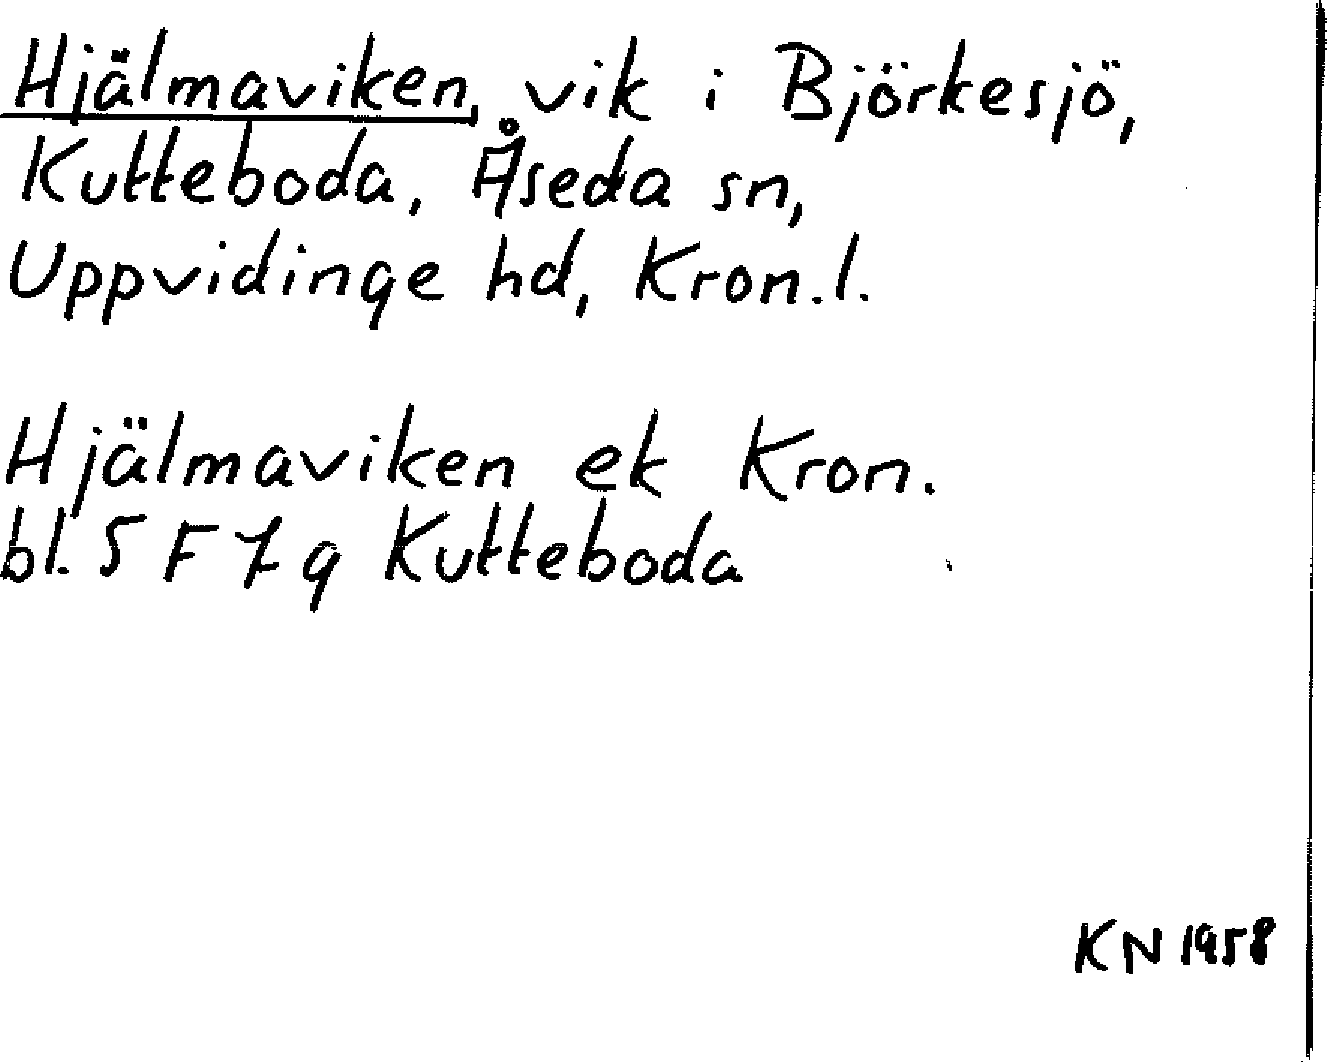 Hjälmaviken, vik i Björkesjö,
Kutteboda, Åseda sn,
Uppvidinge hd, Kron.l.
Hjälmaviken ek Kron.
bl. 5 F 7 g Kutteboda
KN 1958